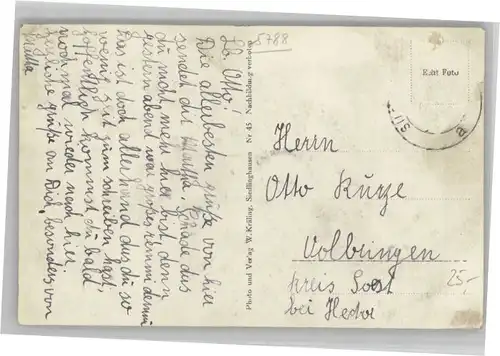 Lb. Otto!
Die allerbesten Grüße von hier
sendet dir Martha. Schade das
du nicht mehr hier bist, denn
gestern abend war großes
das ist doch allerhand das du so
wenig Zeit zum schreiben hast,
hoffentlich kommst du bald
nochmal wieder nach hier.
herzliche Grüße an Dich, besonders von
Martha
5788
Photo und Verlag W. Kräling, Siedlinghausen Nr. 45 Nachbildung verboten
Echt Foto
Herrn
Otto Kurze
Volbringen
Kreis Soest
bei
25,-